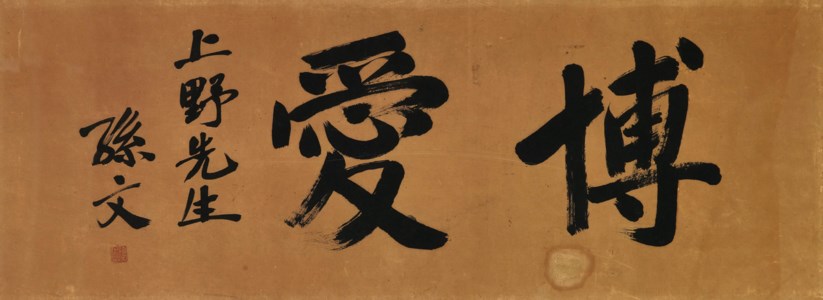 博愛
上野先生
孫文